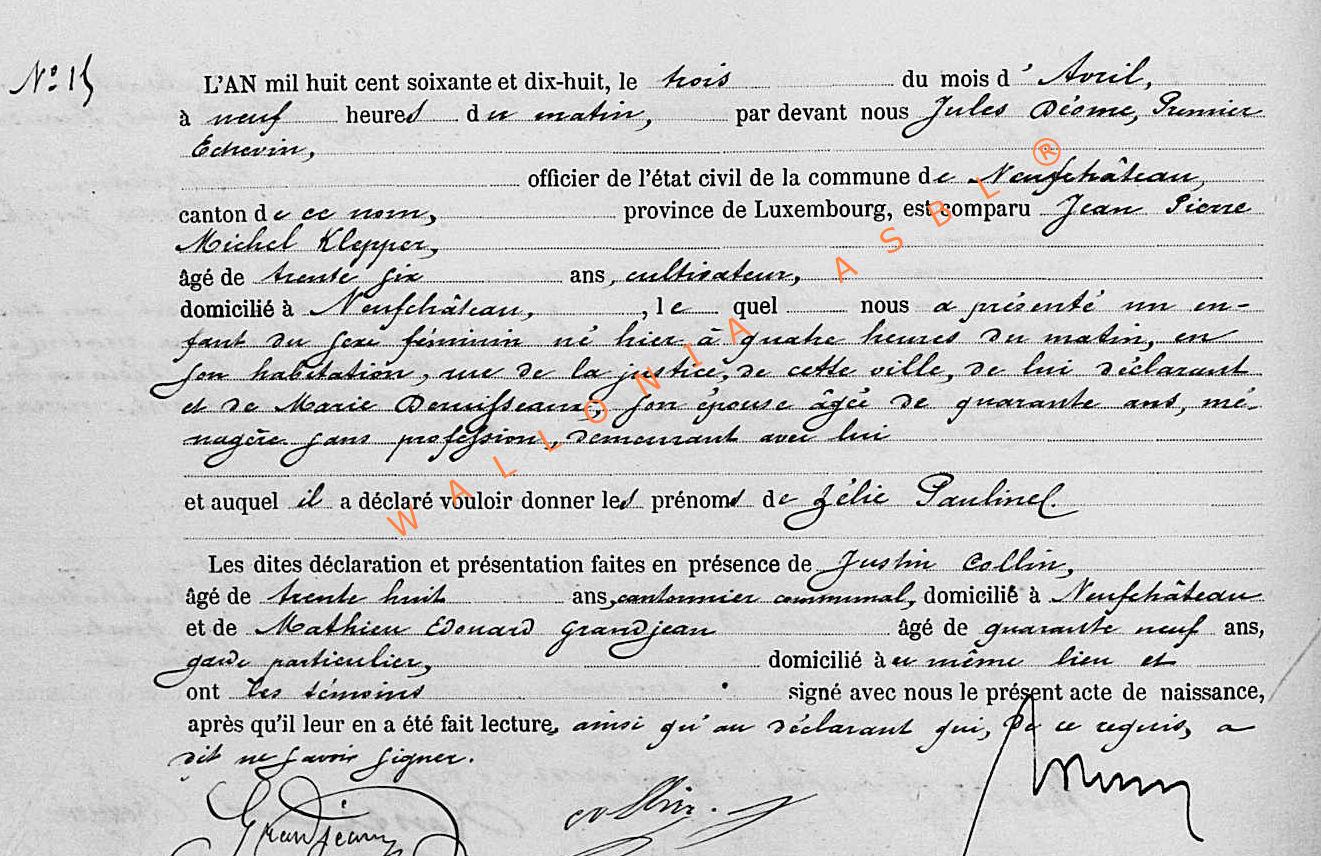 N° 15
L'AN mil huit cent soixante et dix-huit, le trois du mois d' Avril,
à neuf heures du matin, par devant nous Jules Désme, Premier
Echevin,
officier de l'état civil de la commune de Neufchâteau,
canton de ce nom, province de Luxembourg, est comparu Jean Pierre
Michel Klepper,
âgé de trente six ans, cultivateur,
domicilié à Neufchâteau, , le quel nous a présenté un en-
fant du sexe féminin né hier à quatre heures du matin, en
son habitation, rue de la justice, de cette ville, de lui déclarant
et de Marie son épouse âgée de quarante ans, mé-
nagère sans profession, demeurant avec lui
et auquel il a déclaré vouloir donner les prénoms de Zélie Pauline.
Les dites déclaration et présentation faites en présence de Justin Collin,
âgé de trente huit ans, cantonnier communal, domicilié à Neufchâteau
et de Mathieu Edouard Grandjean âgé de quarante neuf ans,
garde particulier, domicilié à ce même lieu et
ont les témoins signé avec nous le présent acte de naissance,
après qu'il leur en a été fait lecture, ainsi qu'au déclarant qui, de ce requis, a
dit ne savoir signer.
Grandjean Collin.
WALLONIA ASBL ®